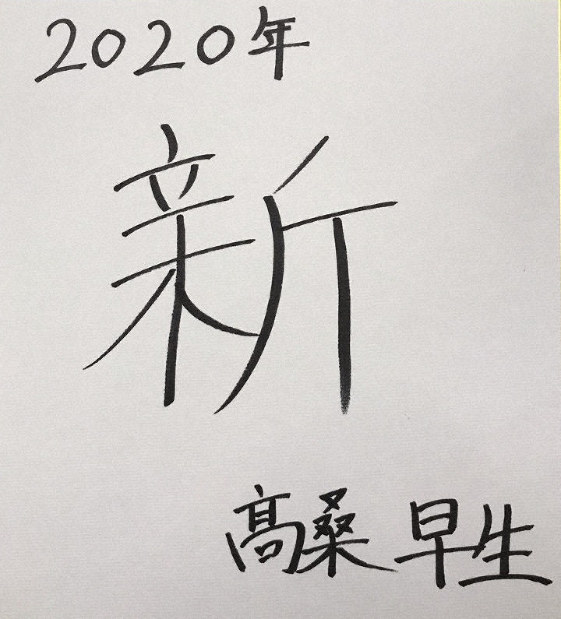 2020年
新
髙桑早生